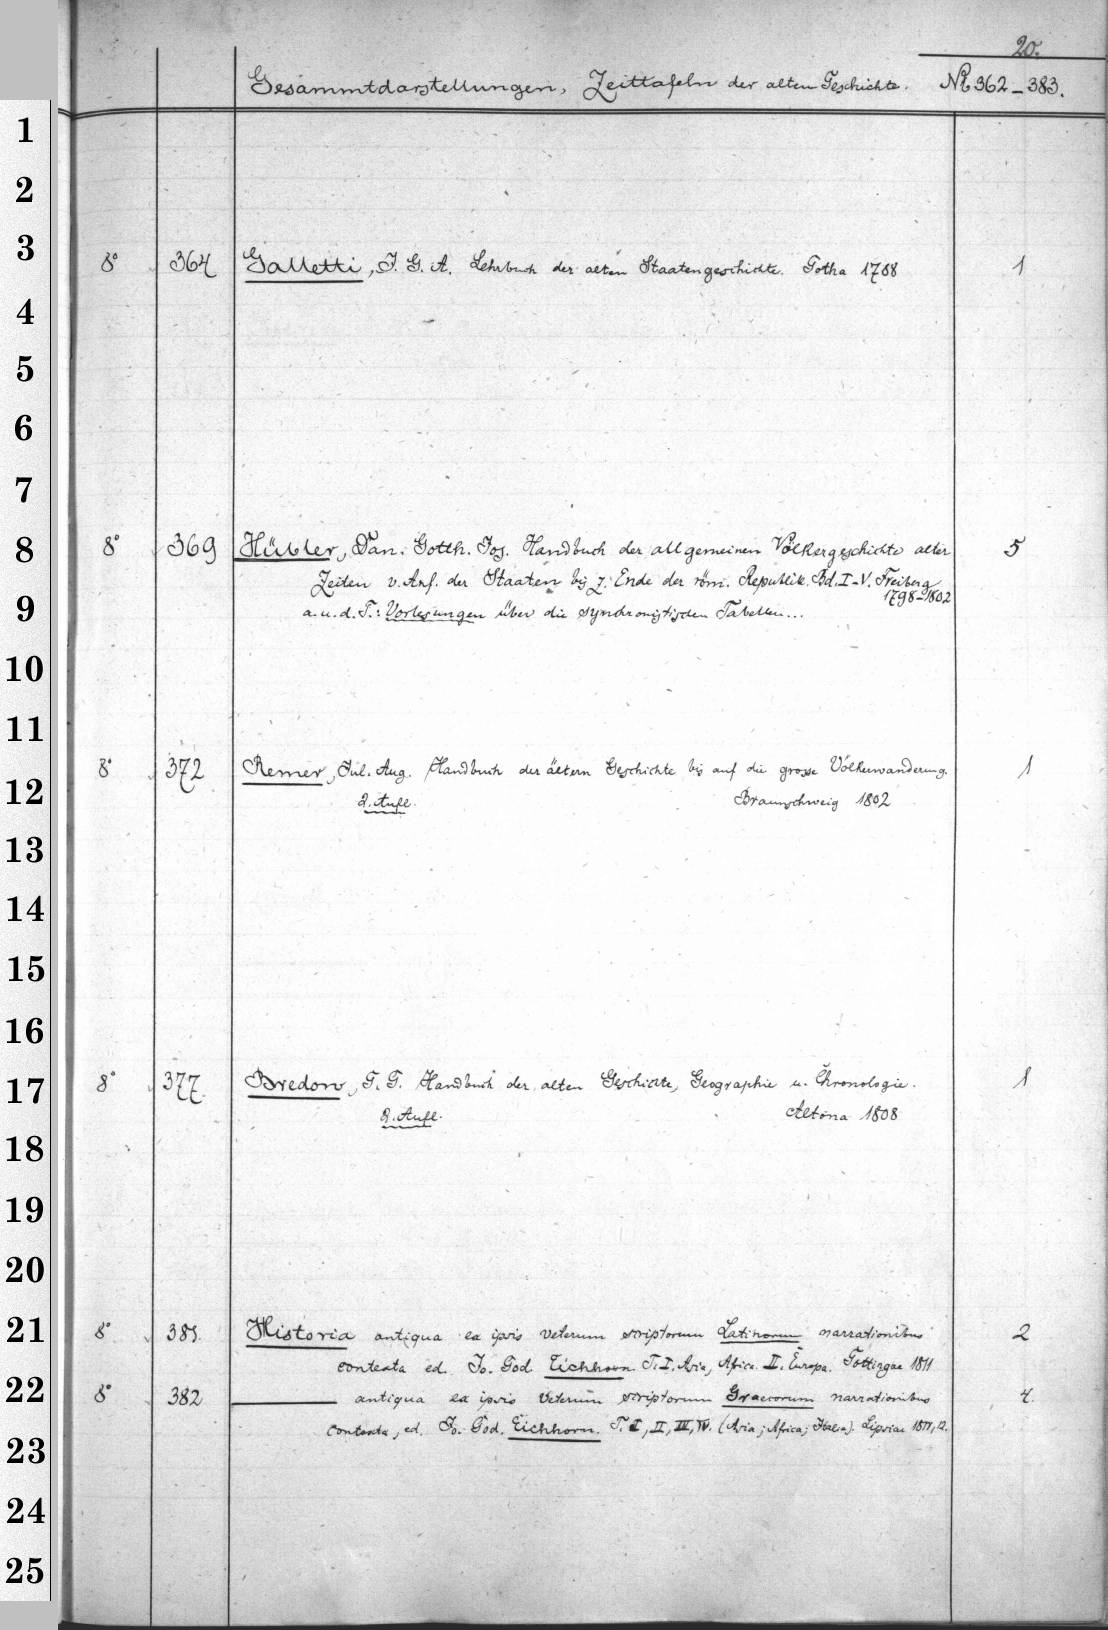 20.
Gesammtdarstellungen, Zeittafeln der alten Geschichte. No 362-383.
1
2
3
8° 364 Galletti, J. G. A. Lehrbuch der alten Staatengeschichte. Gotha 1788 1
4
5
6
7
8
8° 369 Hübler, Dan. Gotth. Jos. Handbuch der allgemeinen Völkergeschichte alter 5
Zeiten v. Anf. der Staaten bis z. Ende der röm. Republik. Bd. I-V. Freiberg
1798-1802
9
a. u. d. T.: Vorlesungen über die synchronistischen Tabellen...
10
11
8° 372 Remer, Jul. Aug. Handbuch der ältern Geschichte bis auf die grosse Völkerwanderung. 1
12
2. Aufl. Braunschweig 1802
13
14
15
16
17
8° 377 Bredow, G. G. Handbuch der alten Geschichte, Geographie u. Chronologie. 1
2. Aufl. Altona 1808
18
19
20
21
8° 381 Historia antiqua ex ipsis veterum scriptorum Latinorum narrationibus 2
contexta ed. Jo. God. Eichhorn. T. I. Asia, Africa. II. Europa. Gottingae 1811
22
8° 382 ——— antiqua ex ipsis veterum scriptorum Graecorum narrationibus 4
contexta, ed. Jo. God. Eichhorn. T. I, II, III, IV. (Asia; Africa; Italia). Lipsiae 1811, 12.
23
24
25